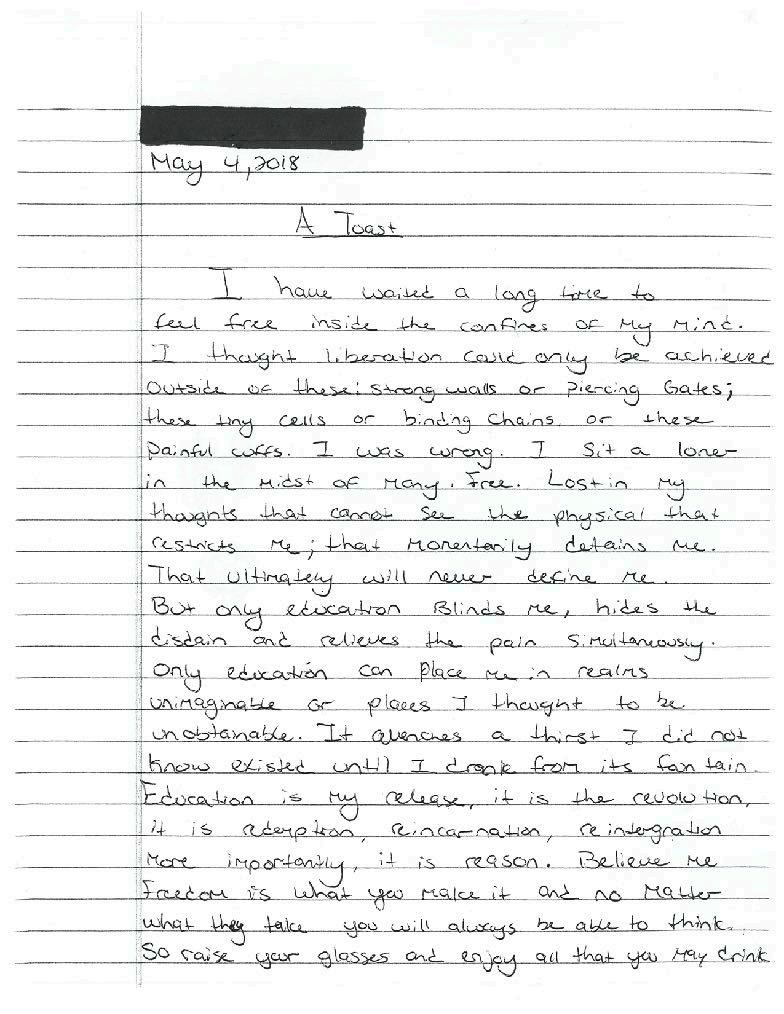 May 4, 2018
A Toast
I have waited a long time to
feel free inside the confines of my mind.
I thought liberation could only be achieved
outside of these: strong walls or piercing Gates;
these tiny cells or binding chains, or these
painful cuffs. I was wrong. I sit a loner
in the midst of many. Free. Lost in my
thoughts that cannot see the physical that
restricts me; that momentarily detains me.
That ultimately will never define me.
But only education Blinds me, hides the
disdain and relieves the pain simultaneously.
Only education can place me in realms
unimaginable or places I thought to be
unobtainable. It quenches a thirst I did not
know existed until I drank from its fantain.
Education is my release, it is the revolution,
it is redemption, reincarnation, reintergration
more importantly, it is reason. Believe me
freedom is what you make it and no matter
what they take you will always be able to think.
So raise your glasses and enjoy all that you may drink